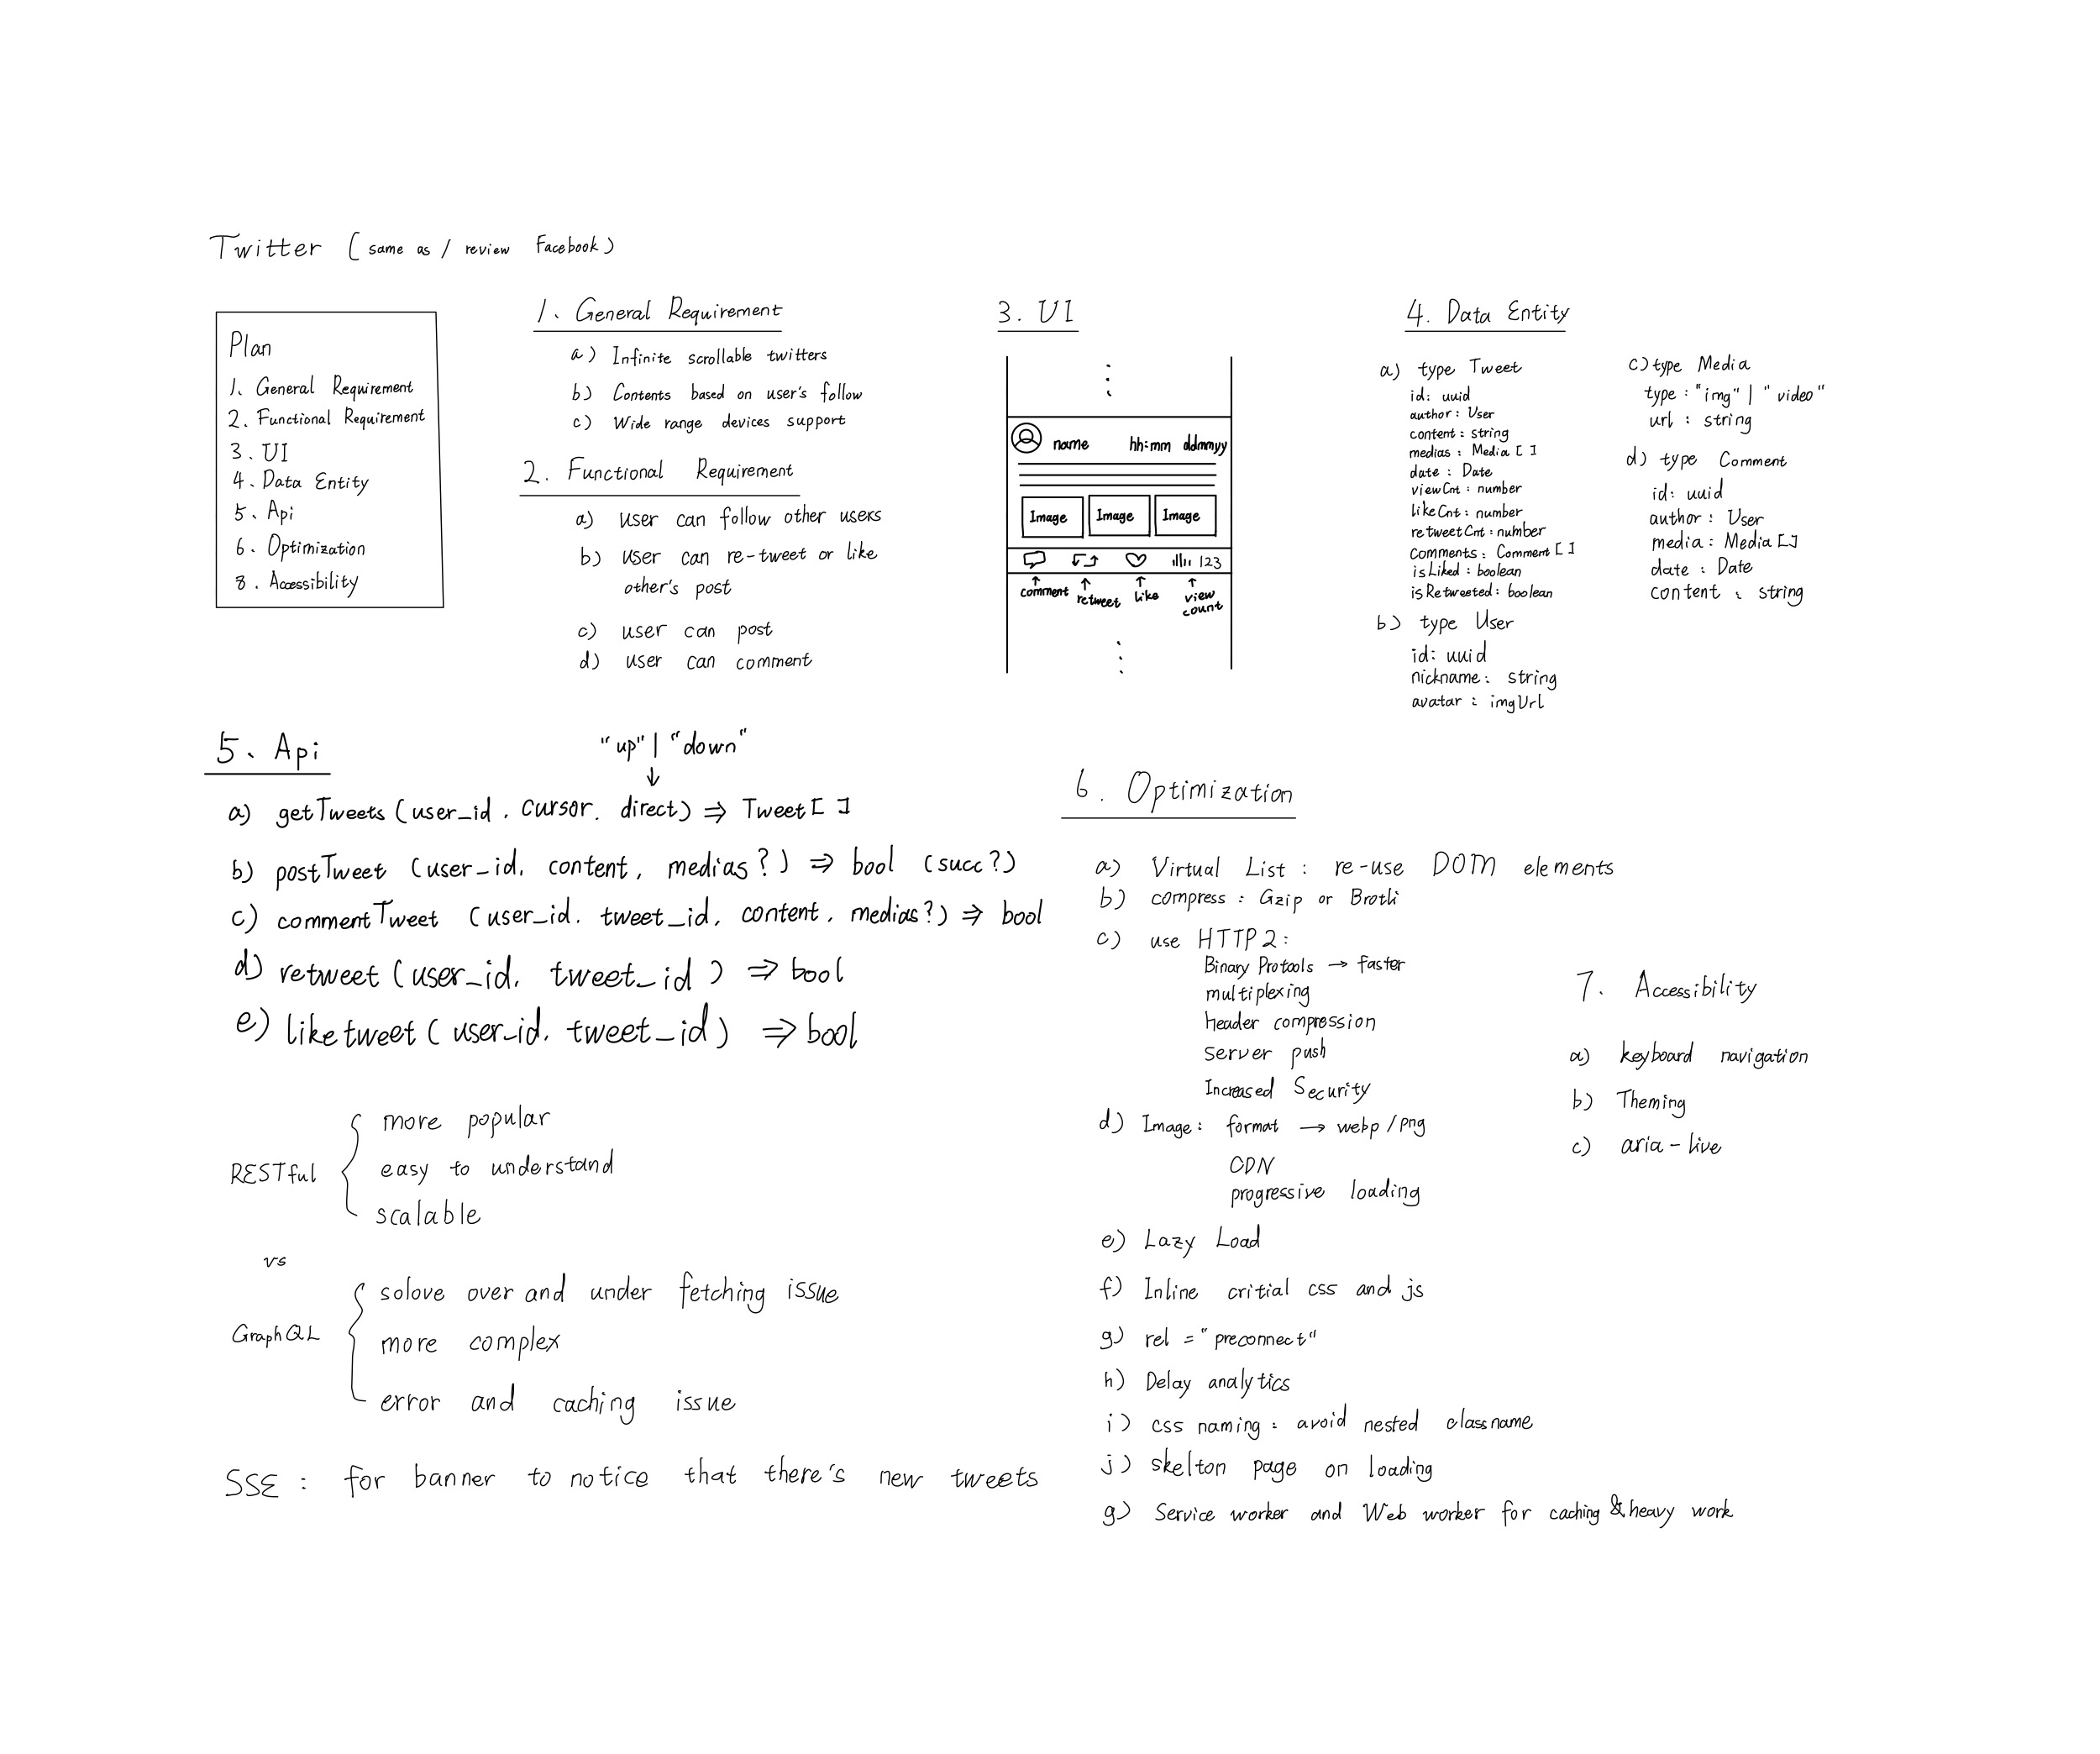 Twitter ( same as / review Facebook )
Plan
1、 General Requirement
2. Functional Requirement
3. UI
4. Data Entity
5、 Api
6. Optimization
8. Accessibility
1、 General Requirement
a) Infinite scrollable twitters
b) Contents based on user's follow
c) Wide range devices support
2. Functional Requirement
a) user can follow other users
b) user can re-tweet or like
other's post
c) user can post
d) user can comment
3. UI
name hh:mm ddmmyy
Image Image Image
123
comment retweet like view
count
4. Data Entity
a) type Tweet
id: uuid
author: User
content: string
medias: Media [ ]
date: Date
viewCnt: number
likeCnt: number
retweetCnt: number
comments: Comment [ ]
isLiked: boolean
isRetweeted: boolean
b) type User
id: uuid
nickname: string
avatar: imgUrl
c) type Media
type: "img" | "video"
url: string
d) type Comment
id: uuid
author: User
media: Media [ ]
date: Date
content: string
5、 Api
"up" | "down"
↓
a) getTweets (user_id, cursor, direct) ⇒ Tweet [ ]
b) postTweet (user_id, content, medias?) ⇒ bool (succ?)
c) commentTweet (user_id, tweet_id, content, medias?) ⇒ bool
d) retweet (user_id, tweet_id) ⇒ bool
e) liketweet (user_id, tweet_id) ⇒ bool
RESTful
more popular
easy to understand
scalable
vs
GraphQL
solove over and under fetching issue
more complex
error and caching issue
SSE : for banner to notice that there's new tweets
6. Optimization
a) Virtual List : re-use DOM elements
b) compress : Gzip or Brotli
c) use HTTP2:
Binary Protools → faster
multiplexing
header compression
server push
Increased Security
d) Image: format → webp/png
CDN
progressive loading
e) Lazy Load
f) Inline critial css and js
g) rel = "preconnect"
h) Delay analytics
i) css naming : avoid nested classname
j) skelton page on loading
g) Service worker and Web worker for caching & heavy work
7. Accessibility
a) keyboard navigation
b) Theming
c) aria-live